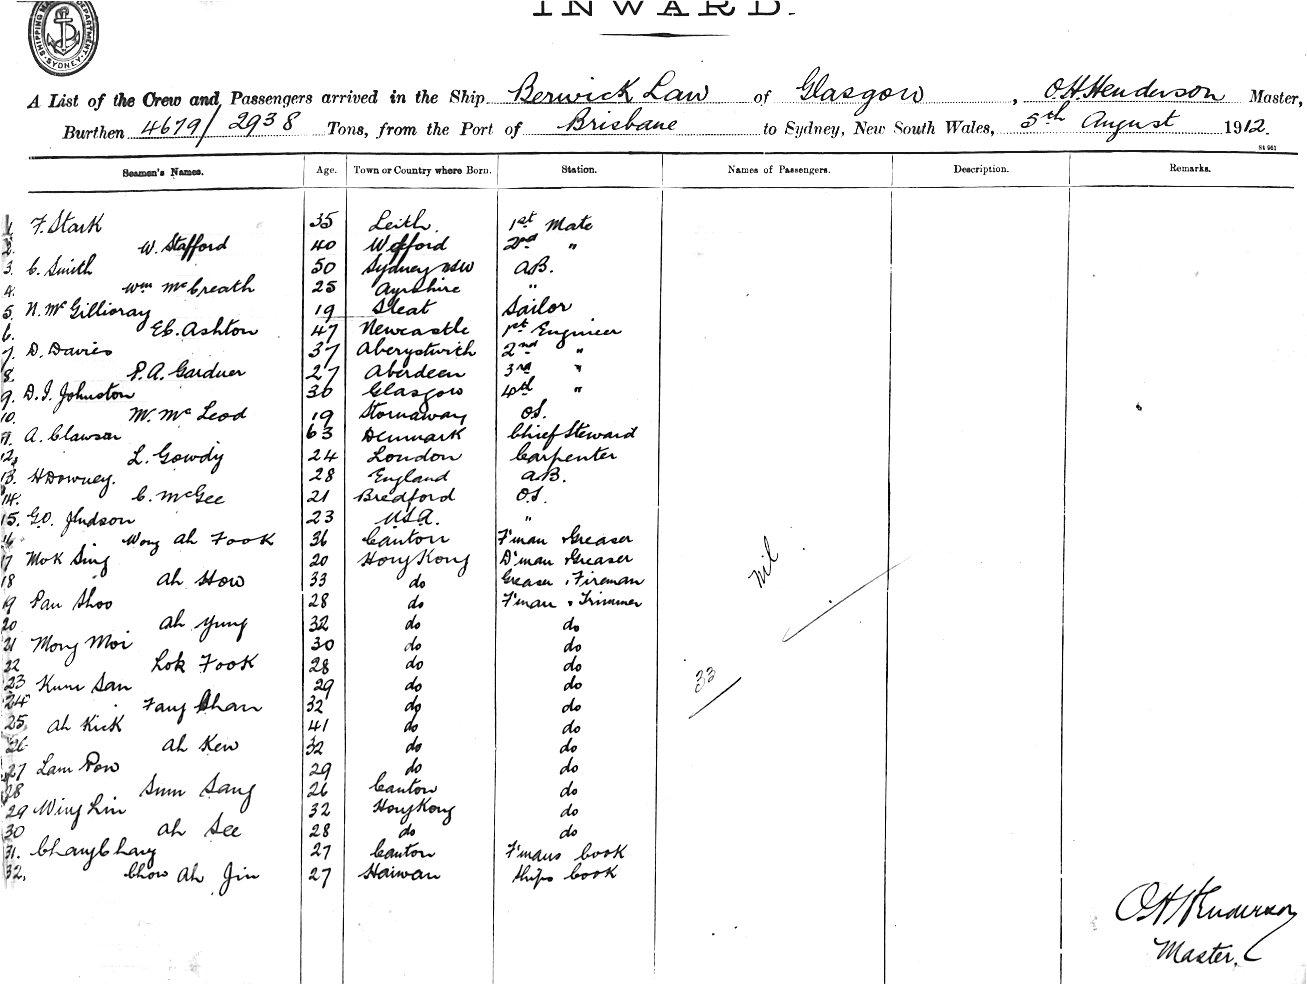 INWARD.
SHIPPING MASTER'S DEPARTMENT SYDNEY
A List of the Crew and Passengers arrived in the Ship Berwick Law of Glasgow, O.H. Henderson Master,
Burthen 4679/2938 Tons, from the Port of Brisbane to Sydney, New South Wales, 5th August 1912.
St 961
Seamen's Names. Age. Town or Country where Born. Station. Names of Passengers. Description. Remarks.
1. F. Stark 35 Leith. 1st Mate
2. W. Stafford 40 Wexford 2nd "
3. C. Smith 50 Sydney NSW A.B.
4. Wm McCreath 25 Ayrshire "
5. N. McGillioray 19 Sleat Sailor
6. E.C. Ashton 47 Newcastle 1st Engineer
7. D. Davies 37 Aberystwith 2nd "
8. P.A. Gardner 27 Aberdeen 3rd "
9. D.I. Johnston 30 Glasgow 4th "
10. M. McLeod 19 Stornaway O.S.
11. A. Clawson 63 Denmark Chief Steward
12. L. Gowdy 24 London Carpenter
13. H Downey. 28 England A.B.
14. C. McGee 21 Bredford O.S.
15. G.O. Judson 23 U.S.A. "
16 Wong Ah Fook 36 Canton F'man & Greaser
17 Mok Sing 20 Hong Kong D'man & Greaser
18 Ah How 33 do Greaser & Fireman
19 Pau Shoo 28 do F'man & Trimmer
20 Ah Yung 32 do do
21 Mong Moi 30 do do
22 Lok Fook 28 do do
23 Kum San 29 do do
24 Fang Chan 32 do do
25 Ah Kick 41 do do
26 Ah Ken 32 do do
27 Lam Pow 29 do do
28 Sum Sang 26 Canton do
29 Wing Lin 32 Hong Kong do
30 Ah See 28 do do
31. Chang Chang 27 Canton F'mans Cook
32. Chow Ah Jin 27 Haiwan Ships Cook
Nil
33
O H Henderson
Master.